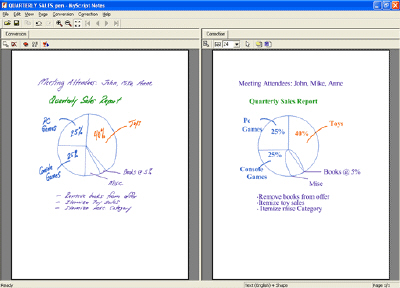 QUARTERLY SALES.pen - MyScript Notes
File Edit View Page Conversion Correction Help
Conversion
Correction
Meeting Attendees: John, Mike, Anne
Quarterly Sales Report
PC Games
25%
40%
Toys
25%
Console Games
Books @ 5%
Misc
- Remove books from offer
- Itemize toy sales
- Itemize misc Category
Meeting Attendees: John, Mike, Anne
Quarterly Sales Report
Pc
Games
25%
40%
Toys
25%
Console
Games
Books @ 5%
Misc
-Remove books from offer
-Itemize toy sales
- Itemize mise Category
Ready
Text (English) + Shape
Page 1/1